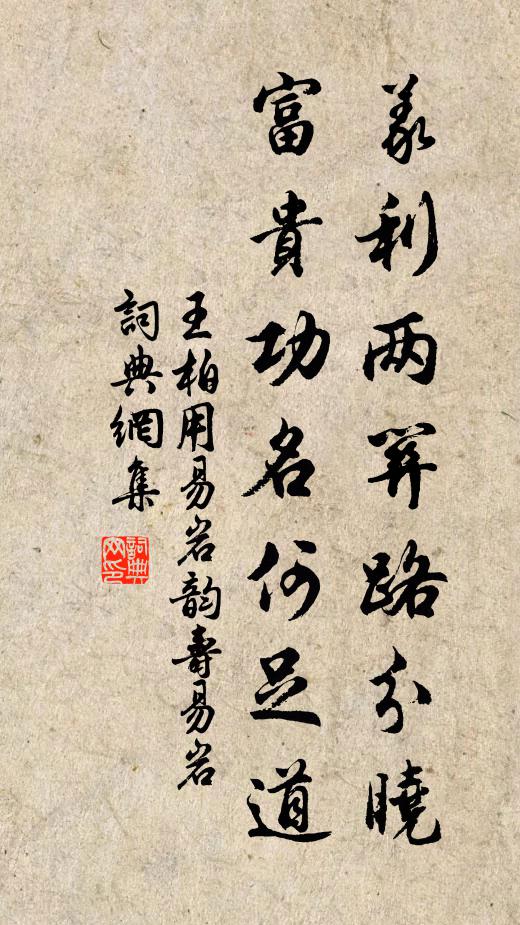 義利两關路分曉
富貴功名何足道
王柏用易岩韵壽易岩
詞典網集
詞典网印